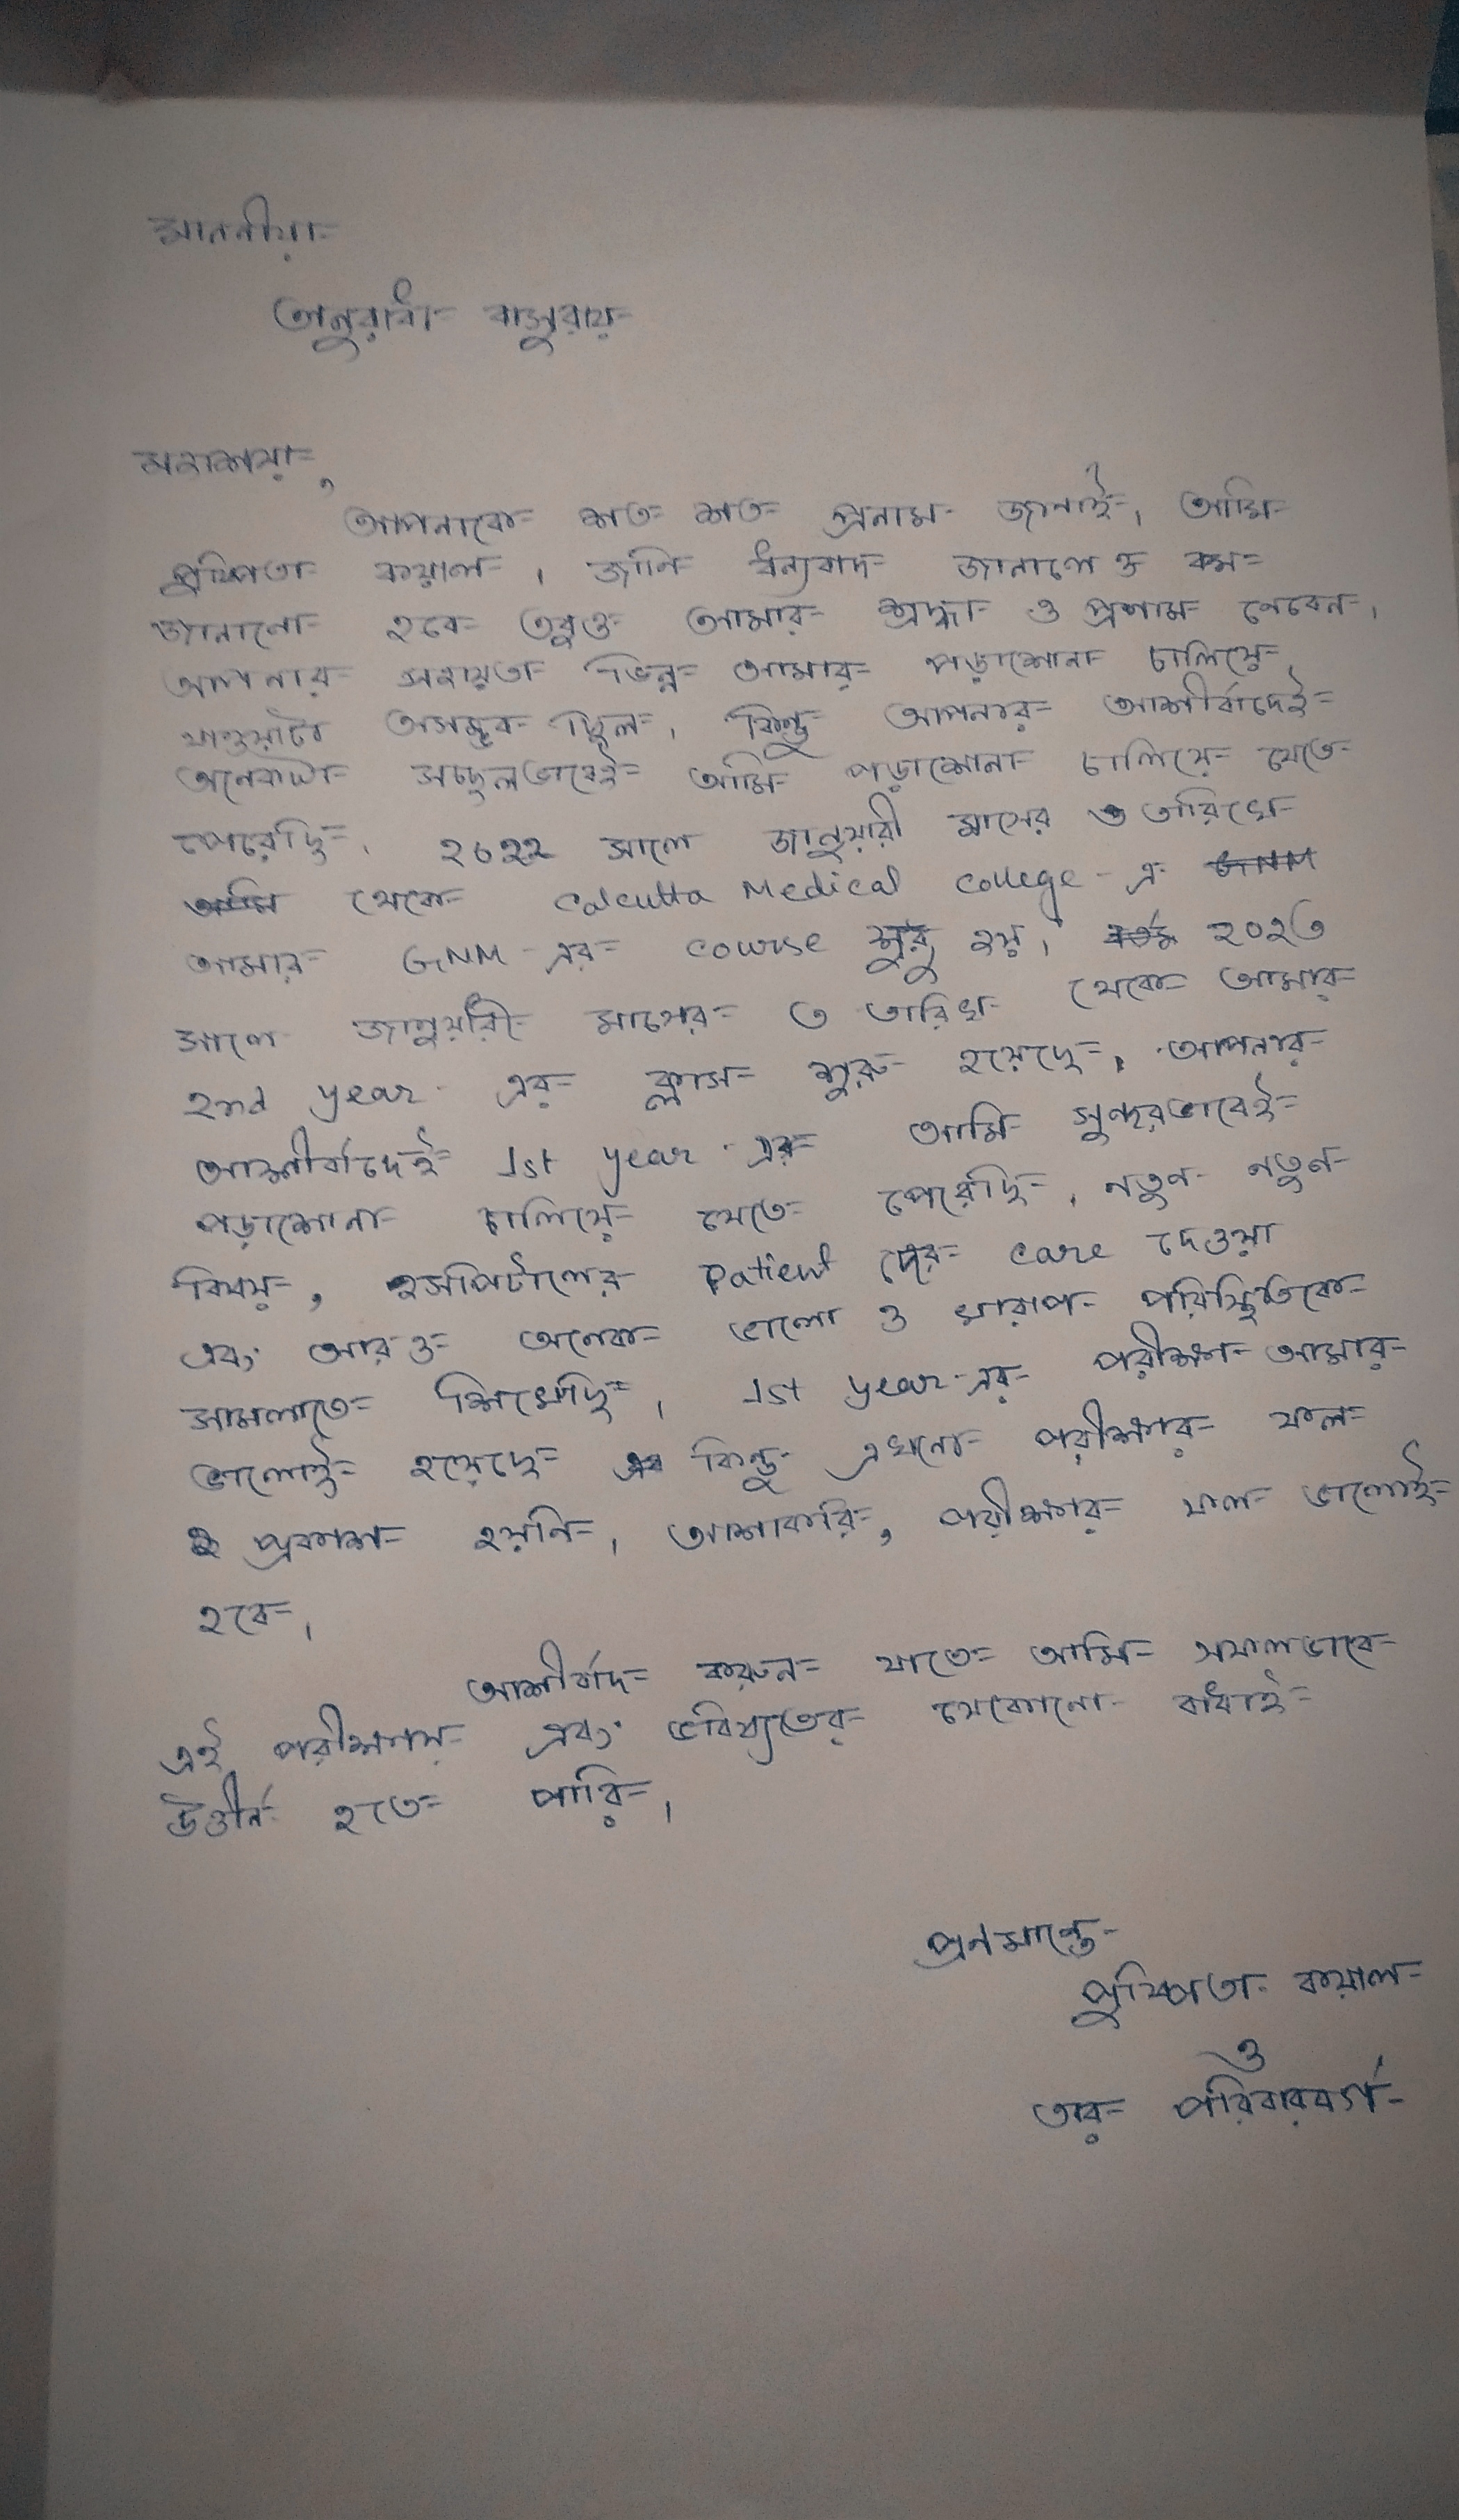 মাননীয়া
অনুরাধা বাসুরায়
মহাশয়া,
আপনাকে শত শত প্রনাম জানাই। আমি
পুষ্পিতা কয়াল। জানি ধন্যবাদ জানালেও কম
জানানো হবে তবুও আমার শ্রদ্ধা ও প্রণাম নেবেন।
আপনার সহায়তা ভিন্ন আমার পড়াশোনা চালিয়ে
যাওয়াটা অসম্ভব ছিল। কিন্তু আপনার আশীর্বাদেই
অনেকটা সচ্ছলভাবেই আমি পড়াশোনা চালিয়ে যেতে
পেরেছি। ২০২২ সালে জানুয়ারী মাসের ৩ তারিখে
থেকে Calcutta Medical College-এ
আমার GNM-এর course শুরু হয়। ২০২৩
সালে জানুয়ারি মাসের ৩ তারিখ থেকে আমার
2nd year এর ক্লাস শুরু হয়েছে। আপনার
আশীর্বাদেই 1st year এর আমি সুন্দরভাবেই
পড়াশোনা চালিয়ে যেতে পেরেছি। নতুন নতুন
বিষয়, হসপিটালের patient দের care দেওয়া
এবং আরও অনেক ভালো ও খারাপ পরিস্থিতিকে
সামলাতে শিখেছি। 1st year-এর পরীক্ষা আমার
ভালোই হয়েছে কিন্তু এখনো পরীক্ষার ফল
প্রকাশ হয়নি। আশাকরি, পরীক্ষার ফল ভালোই
হবে।
আশীর্বাদ করুন যাতে আমি সফলভাবে
এই পরীক্ষায় এবং ভবিষ্যতের যেকোনো বাধাই
উত্তীর্ন হতে পারি।
প্রনমান্তে
পুষ্পিতা কয়াল
ও
তার পরিবারবর্গ